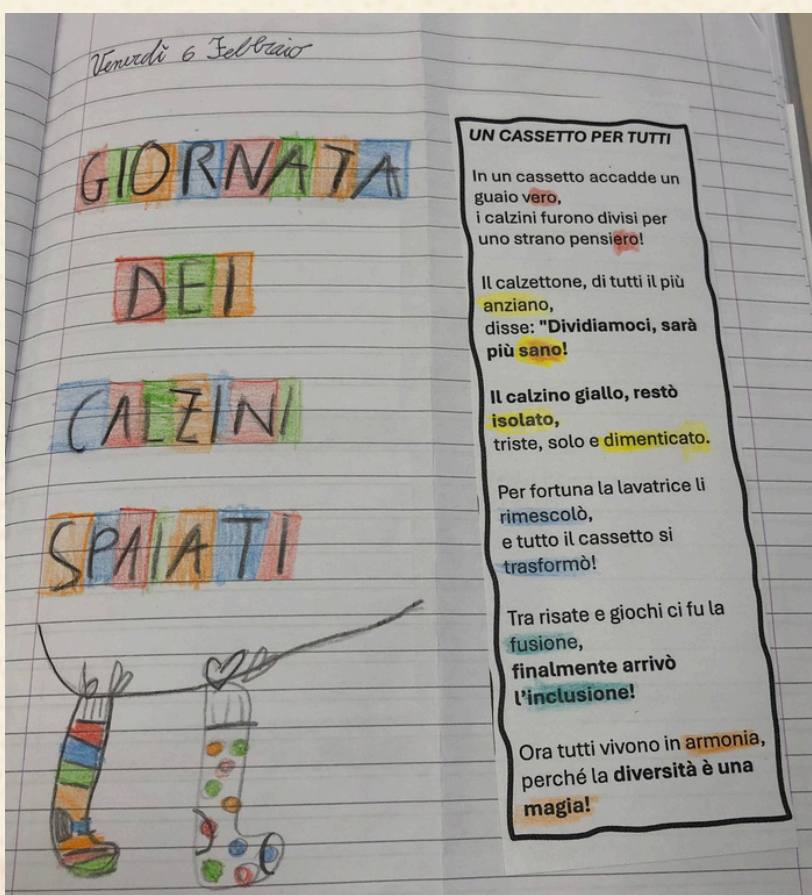 Venerdì 6 Febbraio
GIORNATA
DEI
CALZINI
SPAIATI
UN CASSETTO PER TUTTI
In un cassetto accadde un
guaio vero,
i calzini furono divisi per
uno strano pensiero!
Il calzettone, di tutti il più
anziano,
disse: "Dividiamoci, sarà
più sano!
Il calzino giallo, restò
isolato,
triste, solo e dimenticato.
Per fortuna la lavatrice li
rimescolò,
e tutto il cassetto si
trasformò!
Tra risate e giochi ci fu la
fusione,
finalmente arrivò
l'inclusione!
Ora tutti vivono in armonia,
perché la diversità è una
magia!